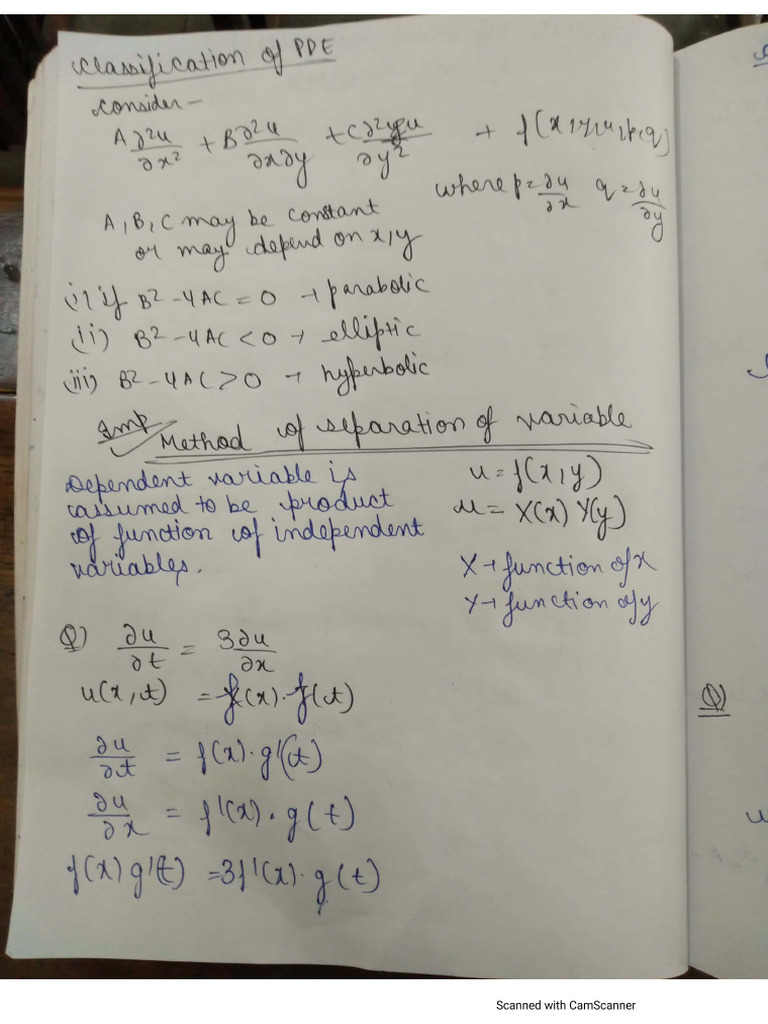 Classification of PDE
Consider –
A ∂²u/∂x² + B ∂²u/∂x∂y + C ∂²u/∂y² + f(x,y,u,p,q)
where p = ∂u/∂x q = ∂u/∂y
A, B, C may be constant
or may depend on x, y
(i) if B² - 4AC = 0 → parabolic
(ii) B² - 4AC < 0 → elliptic
(iii) B² - 4AC > 0 → hyperbolic
Imp
Method of separation of variable
Dependent variable is
assumed to be product
of function of independent
variables.
u = f(x,y)
u = X(x) Y(y)
X → function of x
Y → function of y
Q) ∂u/∂t = 3∂u/∂x
u(x,t) = (x) . (t)
∂u/∂t = f(x) . g'(t)
∂u/∂x = f'(x) . g(t)
f(x) g'(t) = 3f'(x) . g(t)
Q)
Scanned with CamScanner